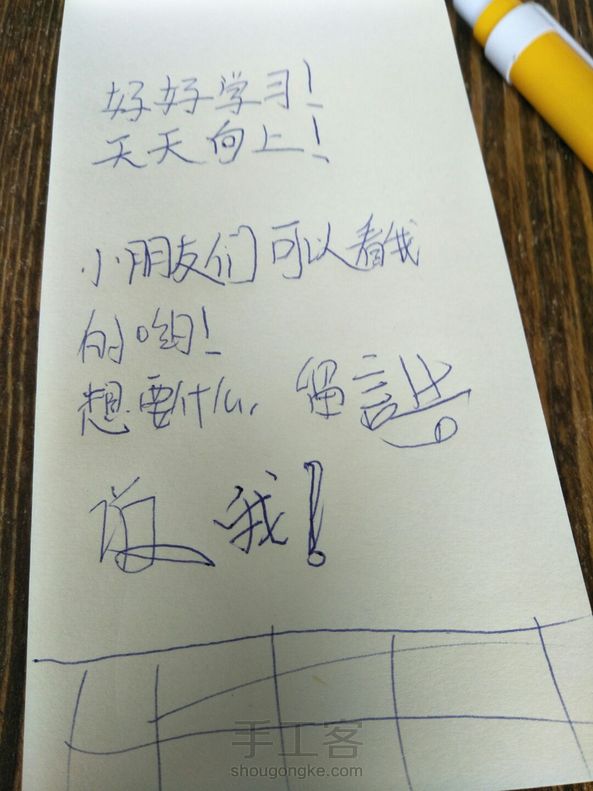 好好学习!
天天向上!
小朋友们可以看我
的哟!
想要什么, 留言
我!
手工客
shougongke.com